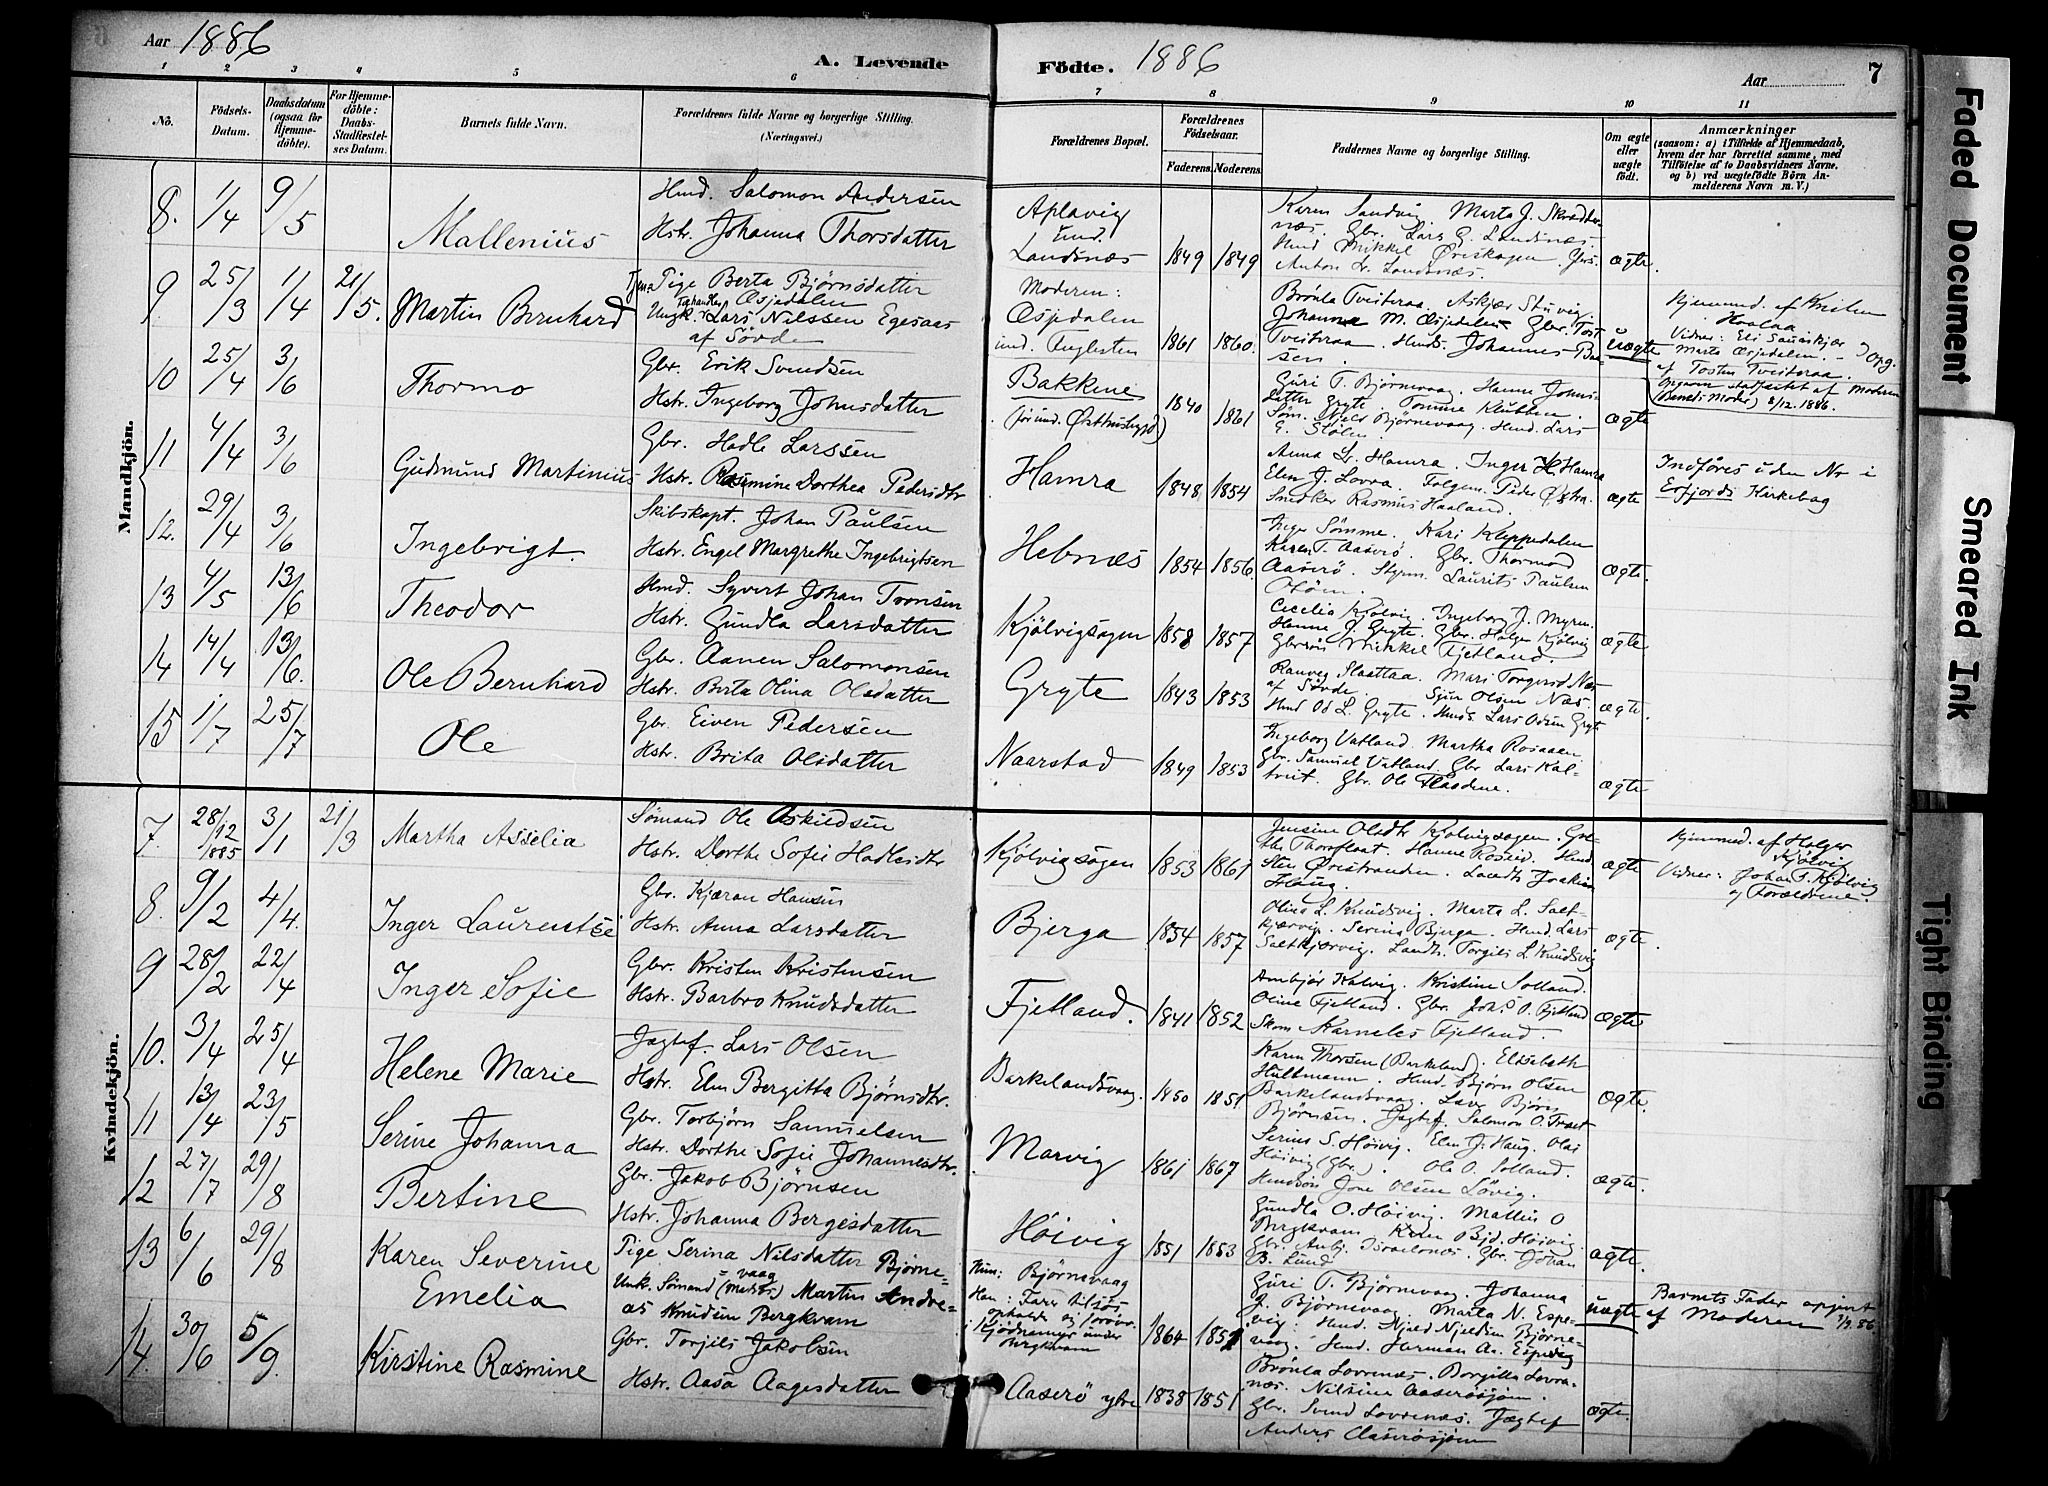 Aar 1886
A. Levende
Födte. 1886
Aar
7
1 2 3 4 5 6 7 8 9 10 11
Nö.
Födsels-Datum.
Daabsdatum (ogsaa for Hjemme-döbte).
For Hjemme-döbte: Daabs-Stadfæstel-ses Datum.
Barnets fulde Navn.
Forældrenes fulde Navne og borgerlige Stilling. (Næringsvei.)
Forældrenes Bopæl.
Forældrenes Födselsaar.
Faderens.
Moderens.
Faddernes Navne og borgerlige Stilling.
Om ægte eller uægte födt.
Anmærkninger
(saasom: a) i Tilfælde af Hjemmedaab, hvem der har forrettet samme, med Tilföielse af to Daabsvidners Navne, og b) ved uægtefödte Börn Anmelderens Navn m. V.)
Mandkjön.
8. 1/4 9/5 Mallenius
Hmd. Salomon Andersen
Hstr. Johanna Thorsdatter
Aplavig und. Landsnæs 1849 1849
Karen Sandvig. Marta J. Skrædder-
næs. Gbr. Lars G. Landsnæs.
Hmd Mikkel Øriskagen.
Anton Landsnæs.
ægte.
9. 25/3 1/4 21/5. Martin Bernhard
Tjen. Pige Berta Bjørnsdatter
Æspedalen
Ungk. Lars Nilssen Egesaas
af Søvde
Moderen: Æspedalen und. Anglesten 1861 1860.
Brönla Tveiteraa. Askjær Stuvig.
Johanna M. Æspedalen. Gbr. Tost
Tveiteraa. Hmds. Johannes
uægte
Hjemmed. af Kristen
Haalaa
Marta Æspedalen.
af Tosten Tveiteraa.
(Barnets Moder) 8/12. 1886.
10 25/4 3/6 Thormo
Gbr. Erik Svendsen
Hstr. Ingeborg Johnsdatter
Bakkene
(för und. Østhusbygd) 1840 1861
Guri T. Bjørnevaag. Hanne Johns-
datter Gryte. Tomine Klubben.
Bjørnevaag. Hmd. Lars
E. Stölen.
ægte
11 4/4 3/6 Gudmund Martinius
Gbr. Hadle Larssen
Hstr. Rasmine Dorthea Pedersdtr
Hamra 1848 1854
Anna Hamra. Inger H. Hamra
Elen J. Lovra. Peder Østra.
Snedker Rasmus Haaland.
ægte
Indføres uden No i
Erfjords Kirkebog
12. 29/4 3/6 Ingebrigt.
Skibskapt. Johan Paulsen
Hstr. Engel Margrethe Ingebrigtsen
Hebnæs 1854 1856.
Inger Sømme. Kari Kleppedalen
Karen T. Aaserö. Gbr. Thormod
Aaserö. Styrm. Laurits Paulsen
ægte.
13 4/5 13/6 Theodor
Hmd. Syvert Johan Tronsen
Hstr. Gundla Larsdatter
Kjölvigsagen 1858 1857
Cecelia Kjölvig. Ingeborg J. Myren.
Hanne J. Gryte. Gbr. Holger Kjölvig
Gbrsön Mikkel Fjetland.
ægte.
14 14/4 13/6. Ole Bernhard
Gbr. Aanen Salomonsen
Hstr. Berta Olina Olsdatter
Gryte 1843 1853
Ranveg Slaattaa. Mari Torgersd. Næs
af Søvde. Sjur Olsen Næs.
Hmd Od L. Gryte. Hmds Lars Odsen Gryte
ægte.
15 1/7 25/7 Ole
Gbr. Eiven Pedersen
Hstr. Brita Olsdatter
Naarstad 1849 1853
Ingeborg Vatland. Martha Rosaaen
Gbr. Samuel Vatland. Gbr Lars Kal-
tveit. Gbr. Ole Flaadene.
ægte
Kvindekjön.
7. 28/12 1885 3/1 21/3 Martha Asselia
Sömand Ole Askildsen
Hstr. Dorthe Sofie Hadlesdtr
Kjölvigsagen 1853 1861
Jensine Olsdtr Kjolvigsagen.
Thorsfloat. Hanne Roseid. Hmd.
Sten Øvistranden. Landh Joakim
Haug.
ægte
Hjemmed. af Holger
Kjölvig
Vidner: Johan T. Kjölvig
og Forældrene.
8. 9/2 4/4. Inger Laurentse
Gbr. Kjæran Hansen
Hstr. Anna Larsdatter
Bjerga 1854 1857
Olina L. Knudsvig. Marta L. Salt-
kjærvig. Serina Bjerga. Hmd. Lars
Saltkjærvig. Landh. Torgils L Knudsvig
ægte.
9 28/2 22/4 Inger Sofie
Gbr. Kristen Kristensen
Hstr. Barbro Knudsdatter
Fjetland. 1841 1852
Ambjör Kalvig. Kristine Solland.
Oline Fjetland. Gbr. Johs O. Fjetland
Skom Karneles Fjetland.
ægte
10. 3/4 25/4 Helene Marie
Jagtef. Lars Olsen
Hstr. Elen Bergitta Bjørnsdtr.
Barkelandsvaag. 1850 1851
Karen Thorsen (Barkeland). Elisebeth
Hultmann. Hmd. Bjørn Olsen
Barkelandsvaag. Bjørn
Bjørnsen. Jagtef. Salomon O. Træet
ægte.
11 13/4 23/5 Serine Johanna
Gbr. Torbjörn Samuelsen
Hstr. Dorthe Sofie Johannesdtr.
Marvig 1861 1867
Serina S. Höivig. Elen J. Haug. Olai
Höivig (Gbr.). Ole O. Solland.
Hmdsön Jone Olsen Lövig.
ægte.
12 27/7 29/8 Bertine
Gbr. Jakob Bjørnsen
Hstr. Johanna Bergesdatter
Höivig 1851 1853
Gundla O. Höivig. Mallin O
Bergkvam. Karen Bjd. Höivig.
Gbr. Anbj. Israelsnes. Gbr. Johan
B. Lund
ægte.
13 6/6 29/8 Karen Severine Emelia
Pige Serina Nilsdatter Bjørne-
vaag
Unk. Sömand (Matros) Martin Andre-
as Knudsen Bergkvam
Hun: Bjørnevaag
Han: Farer tilsjös,
opholder sig forövr.
i Kjödnernes under
Bergkvam 1864 1857
Guri T. Bjørnevaag. Johanna
J. Bjørnevaag. Marta N. Espe-
vig. Hmd. Njeld Njeldsen Bjørne-
vaag. Hmd. Herman A. Espevig
uægte
Barnets Fader opgivet
af Moderen 7/9. 86
14. 30/6 5/9. Kirstine Rasmine
Gbr. Torjels Jakobsen
Hstr. Aasa Aagesdatter
Aaserö ytre 1838 1851
Brönla Lovrenæs. Borgilla Lovre-
næs. Nilsine Aaserösjöen.
Gbr. Svend Lovrenæs. Jægtef
Anders Aaserösjöen
ægte.
Faded Document
Smeared Ink
Tight Binding